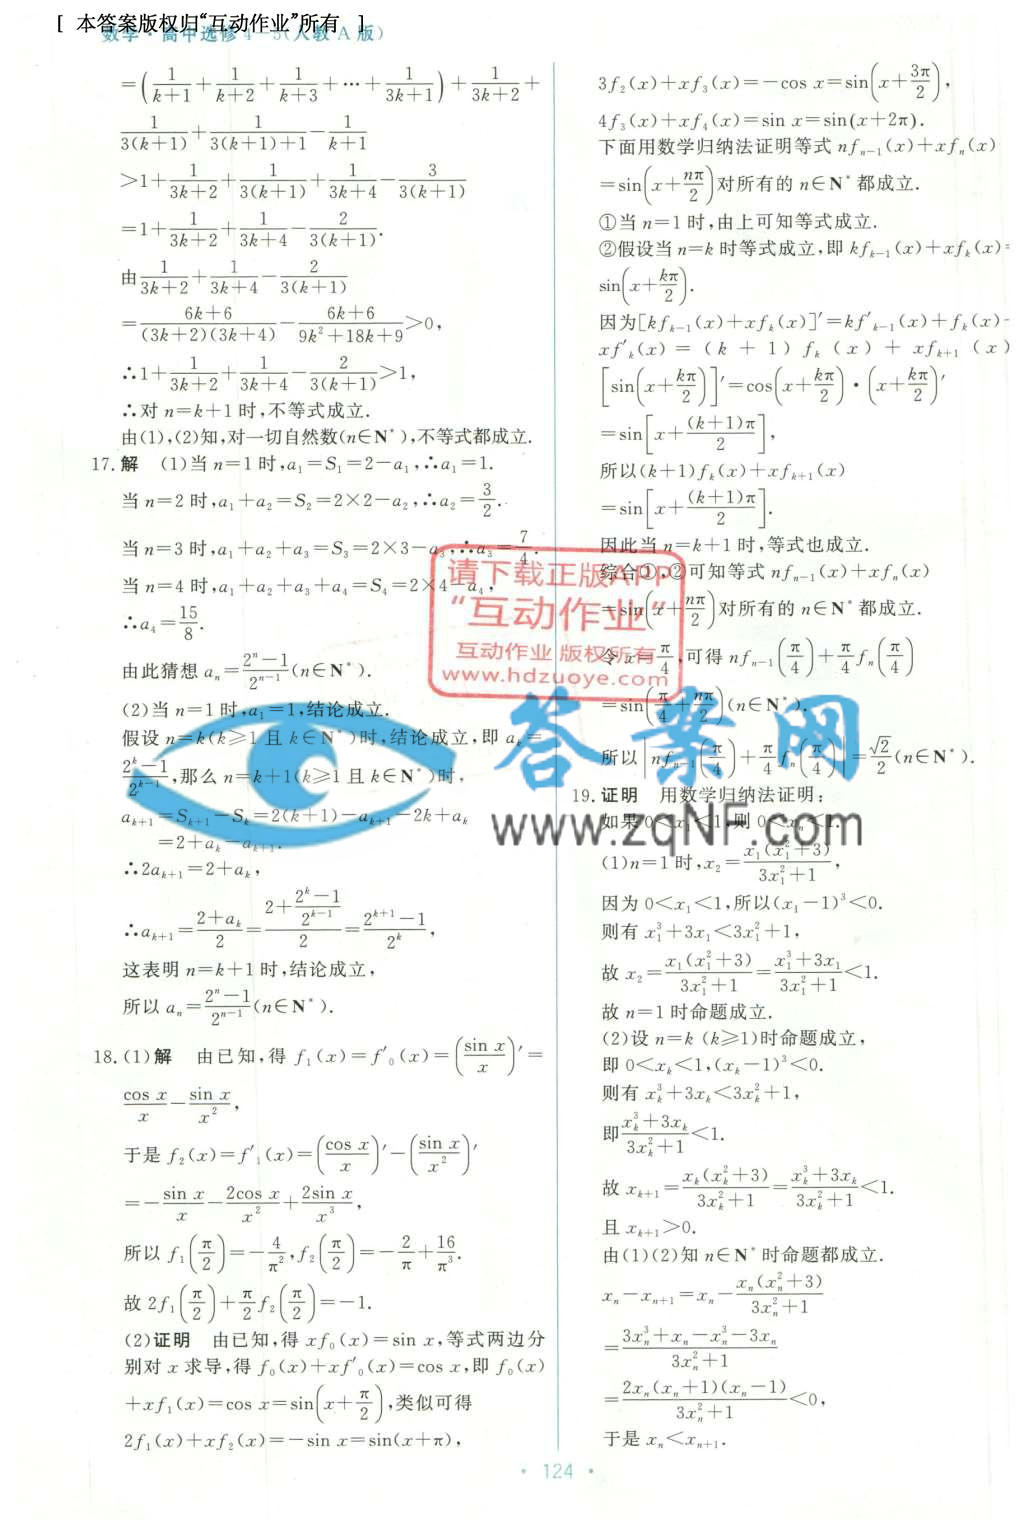 [ 本答案版权归“互动作业”所有 ]
数学·高中选修4-5(人教A版)
=(1/(k+1)+1/(k+2)+1/(k+3)+…+1/(3k+1))+1/(3k+2)+
1/(3(k+1))+1/(3(k+1)+1)-1/(k+1)
>1+1/(3k+2)+1/(3(k+1))+1/(3k+4)-3/(3(k+1))
=1+1/(3k+2)+1/(3k+4)-2/(3(k+1)).
由1/(3k+2)+1/(3k+4)-2/(3(k+1))
=(6k+6)/((3k+2)(3k+4))-(6k+6)/(9k²+18k+9)>0,
∴1+1/(3k+2)+1/(3k+4)-2/(3(k+1))>1,
∴对n=k+1时,不等式成立.
由(1),(2)知,对一切自然数(n∈N*),不等式都成立.
17.解 (1)当n=1时,a₁=S₁=2-a₁,∴a₁=1.
当n=2时,a₁+a₂=S₂=2×2-a₂,∴a₂=3/2.
当n=3时,a₁+a₂+a₃=S₃=2×3-a₃,∴a₃=7/4.
当n=4时,a₁+a₂+a₃+a₄=S₄=2×4-a₄,
∴a₄=15/8.
由此猜想aₙ=(2ⁿ-1)/2ⁿ⁻¹(n∈N*).
(2)当n=1时,a₁=1,结论成立.
假设n=k(k≥1且k∈N*)时,结论成立,即aₖ=
(2ᵏ-1)/2ᵏ⁻¹,那么n=k+1(k≥1且k∈N*)时,
aₖ₊₁=Sₖ₊₁-Sₖ=2(k+1)-aₖ₊₁-2k+aₖ
=2+aₖ-aₖ₊₁.
∴2aₖ₊₁=2+aₖ,
∴aₖ₊₁=(2+aₖ)/2=(2+(2ᵏ-1)/2ᵏ⁻¹)/2=(2ᵏ⁺¹-1)/2ᵏ,
这表明n=k+1时,结论成立,
所以aₙ=(2ⁿ-1)/2ⁿ⁻¹(n∈N*).
18.(1)解 由已知,得f₁(x)=f′₀(x)=(sin x/x)′=
cos x/x-sin x/x²,
于是f₂(x)=f′₁(x)=(cos x/x)′-(sin x/x²)′
=-sin x/x-2cos x/x²+2sin x/x³,
所以f₁(π/2)=-4/π²,f₂(π/2)=-2/π+16/π³.
故2f₁(π/2)+π/2f₂(π/2)=-1.
(2)证明 由已知,得xf₀(x)=sin x,等式两边分
别对x求导,得f₀(x)+xf′₀(x)=cos x,即f₀(x)
+xf₁(x)=cos x=sin(x+π/2),类似可得
2f₁(x)+xf₂(x)=-sin x=sin(x+π),
3f₂(x)+xf₃(x)=-cos x=sin(x+3π/2),
4f₃(x)+xf₄(x)=sin x=sin(x+2π).
下面用数学归纳法证明等式nfₙ₋₁(x)+xfₙ(x)
=sin(x+nπ/2)对所有的n∈N*都成立.
①当n=1时,由上可知等式成立.
②假设当n=k时等式成立,即kfₖ₋₁(x)+xfₖ(x)=
sin(x+kπ/2).
因为[kfₖ₋₁(x)+xfₖ(x)]′=kf′ₖ₋₁(x)+fₖ(x)+
xf′ₖ(x)=(k+1)fₖ(x)+xfₖ₊₁(x)
[sin(x+kπ/2)]′=cos(x+kπ/2)·(x+kπ/2)′
=sin[x+(k+1)π/2],
所以(k+1)fₖ(x)+xfₖ₊₁(x)
=sin[x+(k+1)π/2].
因此当n=k+1时,等式也成立.
综合①,②可知等式nfₙ₋₁(x)+xfₙ(x)
=sin(x+nπ/2)对所有的n∈N*都成立.
令x=π/4,可得nfₙ₋₁(π/4)+π/4fₙ(π/4)
=sin(π/4+nπ/2)(n∈N*).
所以|nfₙ₋₁(π/4)+π/4fₙ(π/4)|=√2/2(n∈N*).
19.证明 用数学归纳法证明:
如果0<x₁<1,则0<xₙ<1.
(1)n=1时,x₂=x₁(x₁²+3)/(3x₁²+1),
因为0<x₁<1,所以(x₁-1)³<0.
则有x₁³+3x₁<3x₁²+1,
故x₂=x₁(x₁²+3)/(3x₁²+1)=(x₁³+3x₁)/(3x₁²+1)<1.
故n=1时命题成立.
(2)设n=k(k≥1)时命题成立,
即0<xₖ<1,(xₖ-1)³<0.
则有xₖ³+3xₖ<3xₖ²+1,
即(xₖ³+3xₖ)/(3xₖ²+1)<1.
故xₖ₊₁=xₖ(xₖ²+3)/(3xₖ²+1)=(xₖ³+3xₖ)/(3xₖ²+1)<1.
且xₖ₊₁>0.
由(1)(2)知n∈N*时命题都成立.
xₙ-xₙ₊₁=xₙ-xₙ(xₙ²+3)/(3xₙ²+1)
=(3xₙ³+xₙ-xₙ³-3xₙ)/(3xₙ²+1)
=2xₙ(xₙ+1)(xₙ-1)/(3xₙ²+1)<0,
于是xₙ<xₙ₊₁.
请下载正版APP
“互动作业”
互动作业 版权所有
www.hdzuoye.com
答案网
www.zqNF.com
· 124 ·